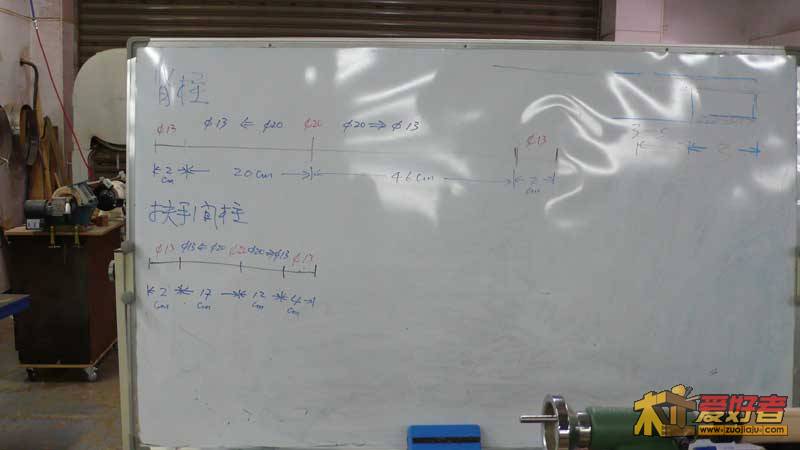 背柱
φ13 φ13 ⇐ φ20 φ20 φ20 ⇒ φ13 φ13
2cm 20cm 46cm 2cm
扶手前柱
φ13 φ13 ⇐ φ20 φ20 φ20 ⇒ φ13 φ13
2cm 17cm 12cm 4cm
爱好者
www.zuojiaju.com